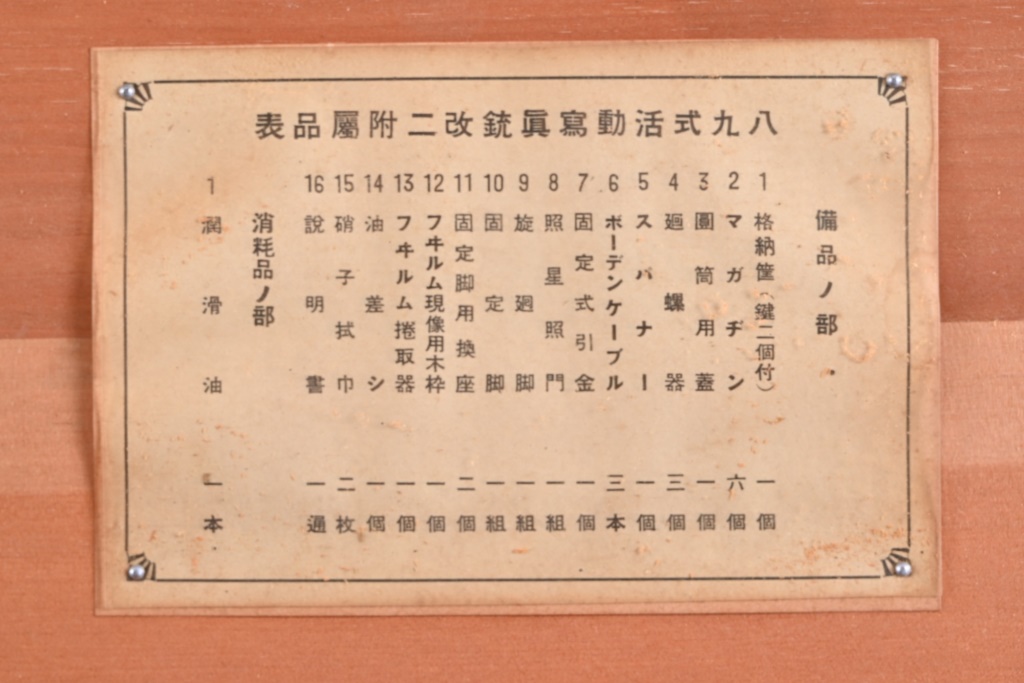 八九式活動寫眞銃改二附屬品表
備品ノ部
1 格納筐(鍵二個付) 一個
2 マガヂン 六個
3 圓筒用蓋 一個
4 廻螺器 三個
5 スパナー 一個
6 ボーデンケーブル 三本
7 固定式引金 一個
8 照星照門 一組
9 旋廻脚 一組
10 固定脚 一組
11 固定脚用換座 二個
12 フヰルム現像用木枠 一個
13 フヰルム捲取器 一個
14 油差シ 一個
15 硝子拭巾 二枚
16 說明書 一通
消耗品ノ部
1 潤滑油 一本